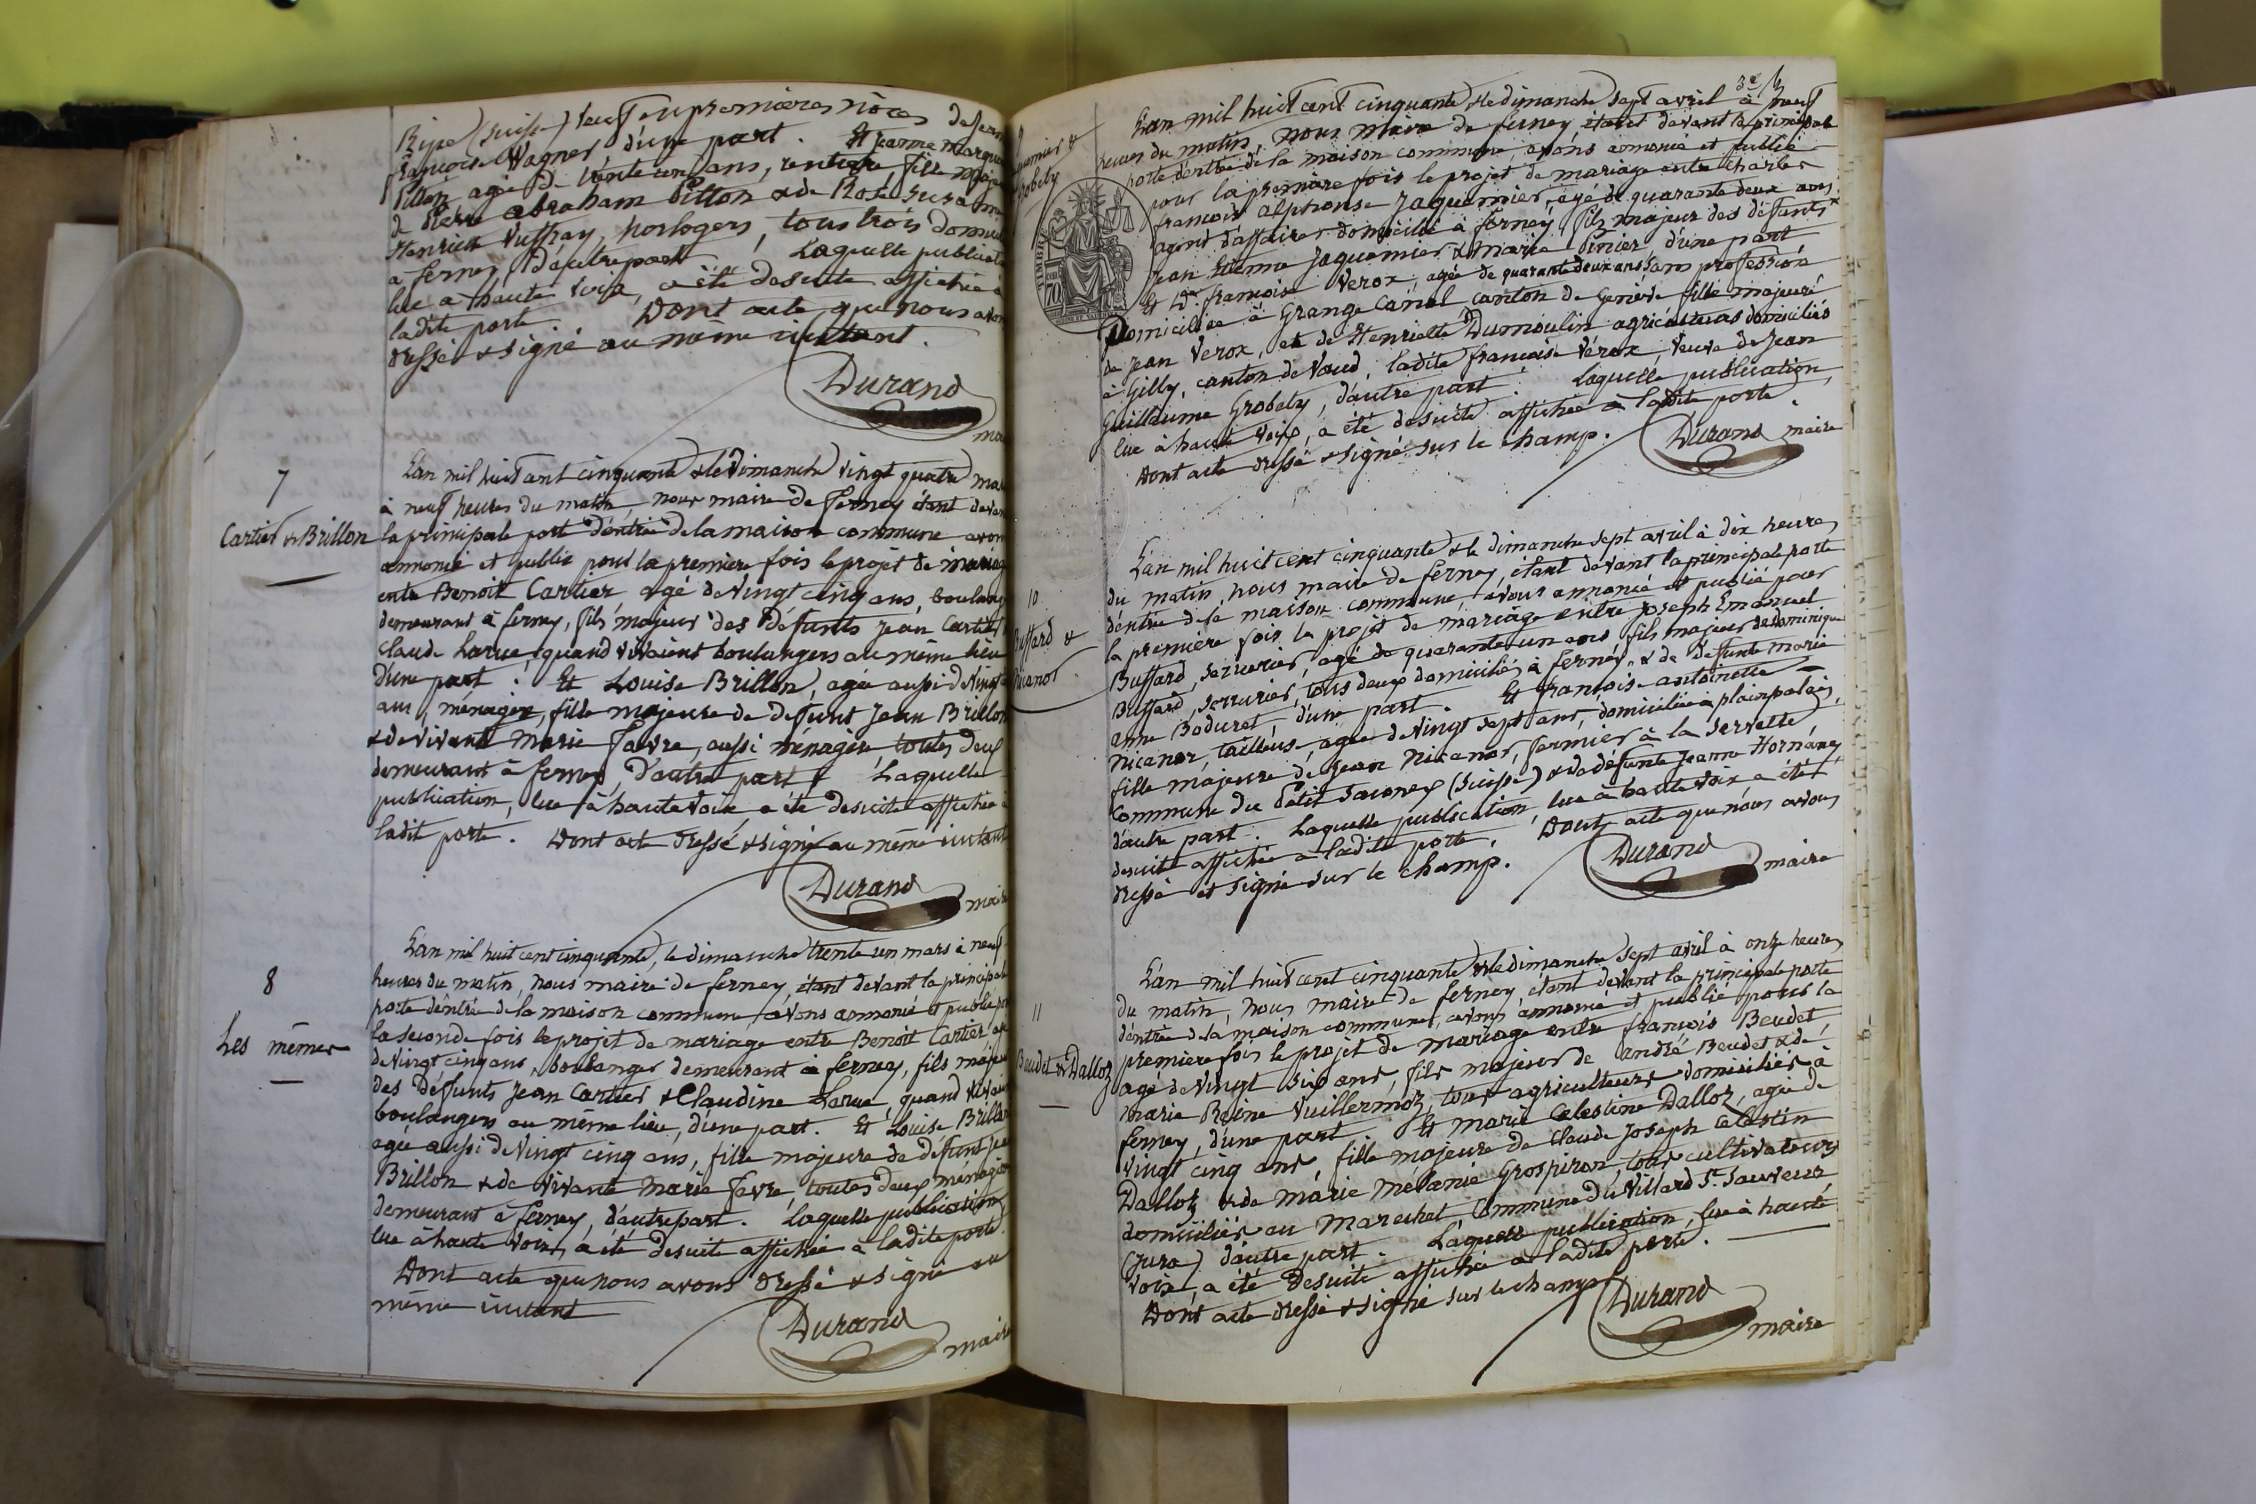 Ripe (Suisse) veuf en premières nôces de Jean
françoise Wagner d'une part. Et Jeanne Margue
Pitton agée de trente cinq ans, rentière, fille majeure
de Pierre abraham Pitton & de Rose Susanne
Henriette Vuffray, horlogers, tous trois domici
a ferney, d'autre part. Laquelle publicati
lue a haute voix, a été desuite affichée à
ladite porte. Dont acte que nous avon
dressé & signé au même instant.
Durand
mai
7
Cartier & Brillon
L'an mil huit cent cinquante & le dimanche vingt quatre ma
à neuf heures du matin, nous maire de ferney étant devan
la principale porte d'entrée de la maison commune avon
annoncé et publié pour la première fois le projet de mariag
entre Benoit Cartier agé de Vingt cinq ans, boulang
demeurant à ferney, fils majeur des défunts Jean Cartier
Claude Larue, quand vivaient boulangers au même lieu
d'une part. Et Louise Brillon, agée aussi de Vingt
ans, ménagère, fille majeure de defunt Jean Brillon
& de vivante Marie favre, aussi ménagère, toutes deux
demeurant à ferney, d'autre part. Laquelle
publication, lue à haute voix, a été desuite affichée à
ladite porte. Dont acte dressé & signé au même instant
Durand
maire
8
Les mêmes
L'an mil huit cent cinquante, le dimanche trente un mars à neuf
heures du matin, nous maire de ferney, étant devant la principale
porte d'entrée de la maison commune avons annoncé et publié pou
la seconde fois le projet de mariage entre Benoit Cartier agé
de Vingt cinq ans, boulanger demeurant à ferney, fils majeur
des défunts Jean Cartier & Claudine Larue, quand vivaien
boulangers au même lieu, d'une part. Et Louise Brillon
agée aussi de Vingt cinq ans, fille majeure de défunt Jean
Brillon & de vivante Marie favre, toutes deux ménagère
demeurant à ferney, d'autre part. Laquelle publication
lue à haute voix, a été desuite affichée à ladite porte.
Dont acte que nous avons dressé & signé au
même instant
Durand
maire
quemier &
Grobety
TIMBRE
70
L'an mil huit cent cinquante & le dimanche sept avril à neuf
heures du matin, nous maire de ferney, étant devant la principale
porte d'entrée de la maison commune, avons annoncé et publié
pour la première fois le projet de mariage entre Charles
françois alphonse Jaquemier, agé de quarante deux ans,
agent d'affaires domicilié à ferney, fils majeur des défunts
Jean Etienne Jaquemier & Marie Pinier, d'une part
Et De françoise Verox, agée de quarante deux ans sans profession
Domiciliée à Grange Canal, canton de Genève fille majeure
de Jean Verox, et de Henriette Dumoulin agriculteurs domiciliés
à Gilly, canton de Vaud, ladite françoise Vérox, veuve de Jean
Guillaume Grobety, d'autre part. Laquelle publication,
lue à haute voix, a été desuite affichée à ladite porte.
Dont acte dressé & signé sur le champ.
Durand maire
10
Buffard &
Nicanor
L'an mil huit cent cinquante & le dimanche sept avril à dix heures
du matin, nous maire de ferney, étant devant la principale porte
d'entrée de la maison commune, avons annoncé et publié pour
la première fois le projet de mariage entre Joseph Emanuel
Buffard, serrurier, agé de quarante un ans fils majeur de dominique
Buffard, serrurier, tous deux domiciliés à ferney & de defunte Marie
anne Boduret, d'une part. Et françoise antoinette
Nicanor, tailleuse, agée de Vingt sept ans, domiciliée à plainpalais,
fille majeure de Jean Nicanor, fermier à la Servette,
Commune du Petit Saconex (Suisse) & de défunte Jeanne Hornéney
d'autre part. Laquelle publication, lue à haute voix a été
desuite affichée à ladite porte. Dont acte que nous avons
dressé et signé sur le champ.
Durand
maire
11
Beudet & Dalloz
L'an mil huit cent cinquante & le dimanche sept avril à onze heures
du matin, nous maire de ferney, étant devant la principale porte
d'entrée de la maison commune, avons annoncé et publié pour la
première fois le projet de mariage entre françois Beudet,
agé de Vingt six ans, fils majeur de andré Beudet & de
Marie Reine Vuillermoz, tous agriculteurs domiciliés à
ferney, d'une part. Et Marie Celestine Dalloz, agée de
Vingt cinq ans, fille majeure de Claude Joseph Celestin
Dalloz & de Marie Mélanie Grospiron, tous cultivateurs
domiciliés au Marechet Commune du Villard St Sauveur
(Jura) d'autre part. Laquelle publication, lue à haute
voix, a été desuite affichée à ladite porte.
Dont acte dressé & signé sur le champ.
Durand
maire